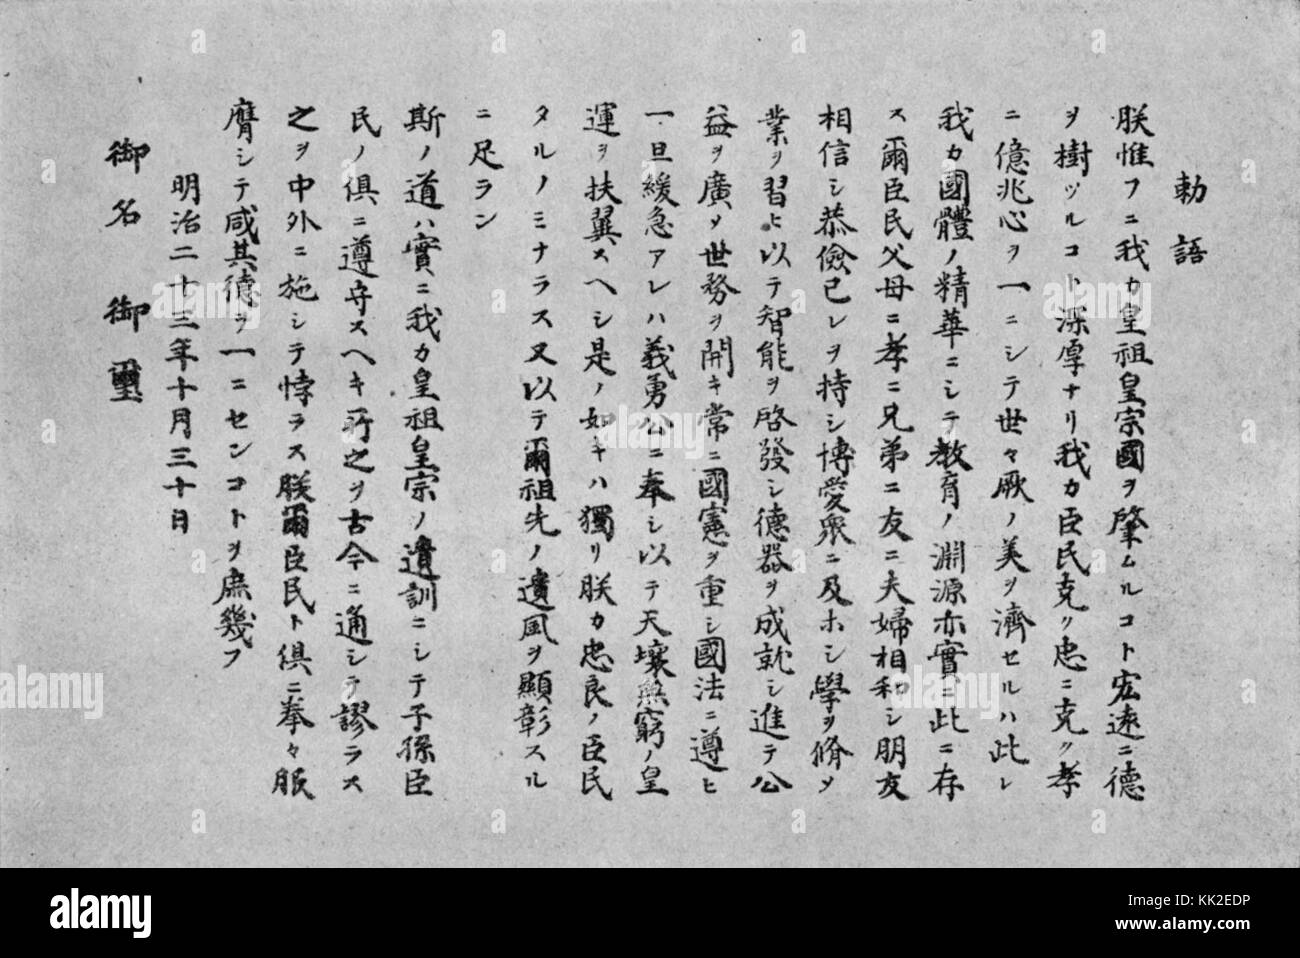 勅語
朕惟フニ我カ皇祖皇宗國ヲ肇ムルコト宏遠ニ德
ヲ樹ツルコト深厚ナリ我カ臣民克ク忠ニ克ク孝
ニ億兆心ヲ一ニシテ世々厥ノ美ヲ濟セルハ此レ
我カ國體ノ精華ニシテ教育ノ淵源亦實ニ此ニ存
ス爾臣民父母ニ孝ニ兄弟ニ友ニ夫婦相和シ朋友
相信シ恭儉己レヲ持シ博愛衆ニ及ホシ學ヲ脩メ
業ヲ習ヒ以テ智能ヲ啓發シ德器ヲ成就シ進テ公
益ヲ廣メ世務ヲ開キ常ニ國憲ヲ重シ國法ニ遵ヒ
一旦緩急アレハ義勇公ニ奉シ以テ天壤無窮ノ皇
運ヲ扶翼スヘシ是ノ如キハ獨リ朕カ忠良ノ臣民
タルノミナラス又以テ爾祖先ノ遺風ヲ顯彰スル
ニ足ラン
斯ノ道ハ實ニ我カ皇祖皇宗ノ遺訓ニシテ子孫臣
民ノ俱ニ遵守スヘキ所之ヲ古今ニ通シテ謬ラス
之ヲ中外ニ施シテ悖ラス朕爾臣民ト俱ニ拳々服
膺シテ咸其德ヲ一ニセンコトヲ庶幾フ
明治二十三年十月三十日
御名 御璽
a alamy
alamy
Image ID: KK2EDP
www.alamy.com